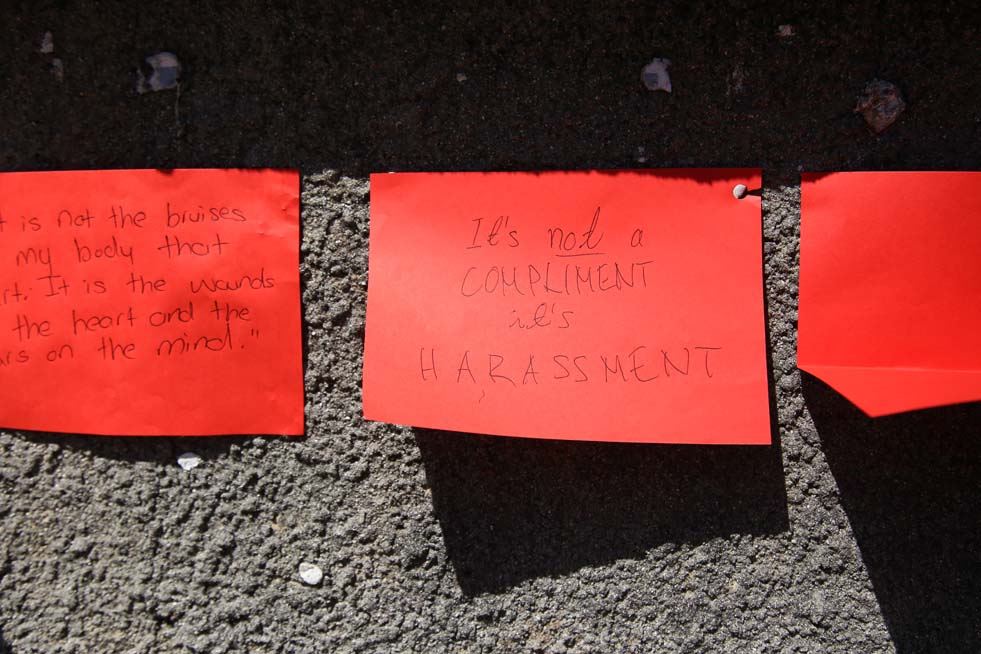 t is not the bruises
my body that
rt. It is the wounds
the heart and the
ars on the mind."
It's not a
COMPLIMENT
it's
HARASSMENT